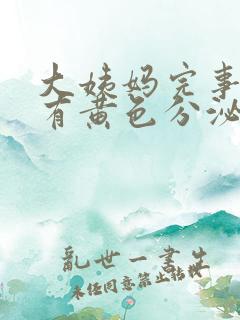 大姨妈完事
有黄色分泌
乱世一书生
未经同意禁止转载